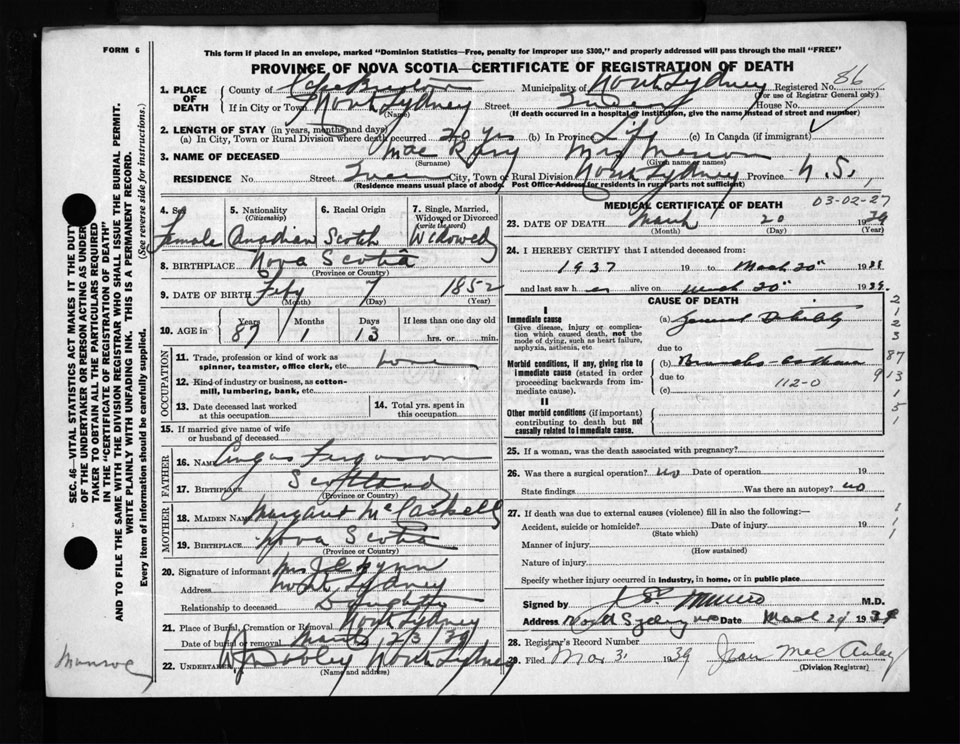 FORM 6
This form if placed in an envelope, marked "Dominion Statistics—Free, penalty for improper use $300," and properly addressed will pass through the mail "FREE"
PROVINCE OF NOVA SCOTIA—CERTIFICATE OF REGISTRATION OF DEATH
SEC. 46—VITAL STATISTICS ACT MAKES IT THE DUTY
OF THE UNDERTAKER OR PERSON ACTING AS UNDER-
TAKER TO OBTAIN ALL THE PARTICULARS REQUIRED
IN THE "CERTIFICATE OF REGISTRATION OF DEATH"
AND TO FILE THE SAME WITH THE DIVISION REGISTRAR WHO SHALL ISSUE THE BURIAL PERMIT.
WRITE PLAINLY WITH UNFADING INK. THIS IS A PERMANENT RECORD.
Every item of information should be carefully supplied. (See reverse side for instructions.)
1. PLACE OF DEATH
County of Cape Breton Municipality of North Sydney Registered No. 86
(For use of Registrar General only.)
If in City or Town North Sydney Street Queen House No.
(Name)
(If death occurred in a hospital or institution, give the name instead of street and number)
2. LENGTH OF STAY (in years, months and days)
(a) In City, Town or Rural Division where death occurred 20 yrs (b) In Province Life (c) In Canada (if immigrant)
3. NAME OF DECEASED Mac Rury Mrs Marion
(Surname) (Given name or names)
RESIDENCE No. Street Queen City, Town or Rural Division North Sydney Province N.S.
(Residence means usual place of abode. Post Office Address for residents in rural parts not sufficient)
4. Sex Female
5. Nationality (Citizenship) Canadian
6. Racial Origin Scotch
7. Single, Married, Widowed or Divorced (write the word) Widowed
8. BIRTHPLACE Nova Scotia
(Province or Country)
9. DATE OF BIRTH Feby 7 1852
(Month) (Day) (Year)
10. AGE in Years 87 Months 1 Days 13 If less than one day old hrs. or min.
OCCUPATION
11. Trade, profession or kind of work as spinner, teamster, office clerk, etc.
12. Kind of industry or business, as cotton-mill, lumbering, bank, etc.
13. Date deceased last worked at this occupation
14. Total yrs. spent in this occupation
15. If married give name of wife or husband of deceased
FATHER
16. NAME Angus Ferguson
17. BIRTHPLACE Scotland
(Province or Country)
MOTHER
18. MAIDEN NAME Margaret McCaskell
19. BIRTHPLACE Nova Scotia
(Province or Country)
20. Signature of informant Mrs
Address North Sydney
Relationship to deceased Daughter
21. Place of Burial, Cremation or Removal North Sydney
Date of burial or removal March 23/39
22. UNDERTAKER North Sydney
(Name and address)
Munroe
MEDICAL CERTIFICATE OF DEATH 03-02-27
23. DATE OF DEATH March 20 1939
(Month) (Day) (Year)
24. I HEREBY CERTIFY that I attended deceased from
1937 19 to March 20" 1939
and last saw her alive on March 20" 1939.
CAUSE OF DEATH
I
Immediate cause
Give disease, injury or complication which caused death, not the mode of dying, such as heart failure, asphyxia, asthenia, etc.
(a) General Debility
due to
Morbid conditions, if any, giving rise to immediate cause (stated in order proceeding backwards from immediate cause).
(b)
due to 112-0
(c)
II
Other morbid conditions (if important) contributing to death but not causally related to immediate cause.
25. If a woman, was the death associated with pregnancy?
26. Was there a surgical operation? no Date of operation 19
State findings Was there an autopsy? no
27. If death was due to external causes (violence) fill in also the following:—
Accident, suicide or homicide? Date of injury 19
(State which)
Manner of injury
(How sustained)
Nature of injury
Specify whether injury occurred in industry, in home, or in public place
Signed by M.D.
Address North Sydney NS Date March 21 1939
28. Registrar's Record Number
29. Filed Mar 31 1939 Jean MacAulay
(Division Registrar)